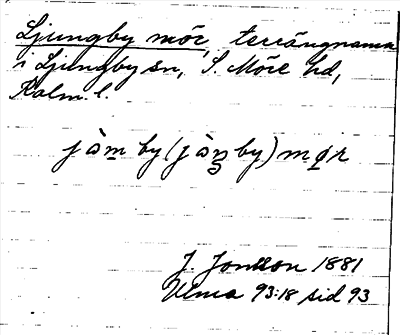 Ljungby mör, terrängnamn
i Ljungby sn, S. Möre hd,
Kalm. l.
jàm by (jàŋ by) møʀ
J. Jonsson 1881
Ulma 93:18 sid 93